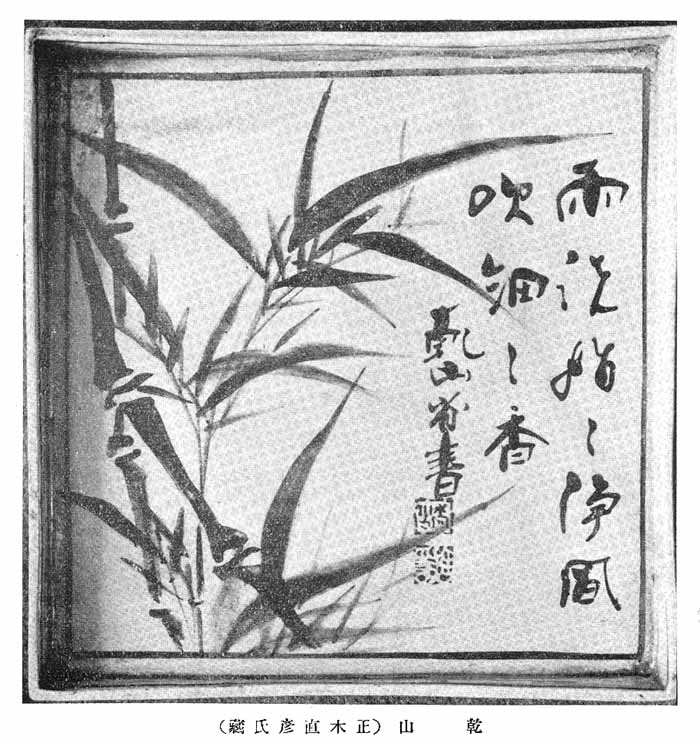 雨洗娟〻浄風
吹細〻香
乾山省書
乾山（正木直彥氏藏）